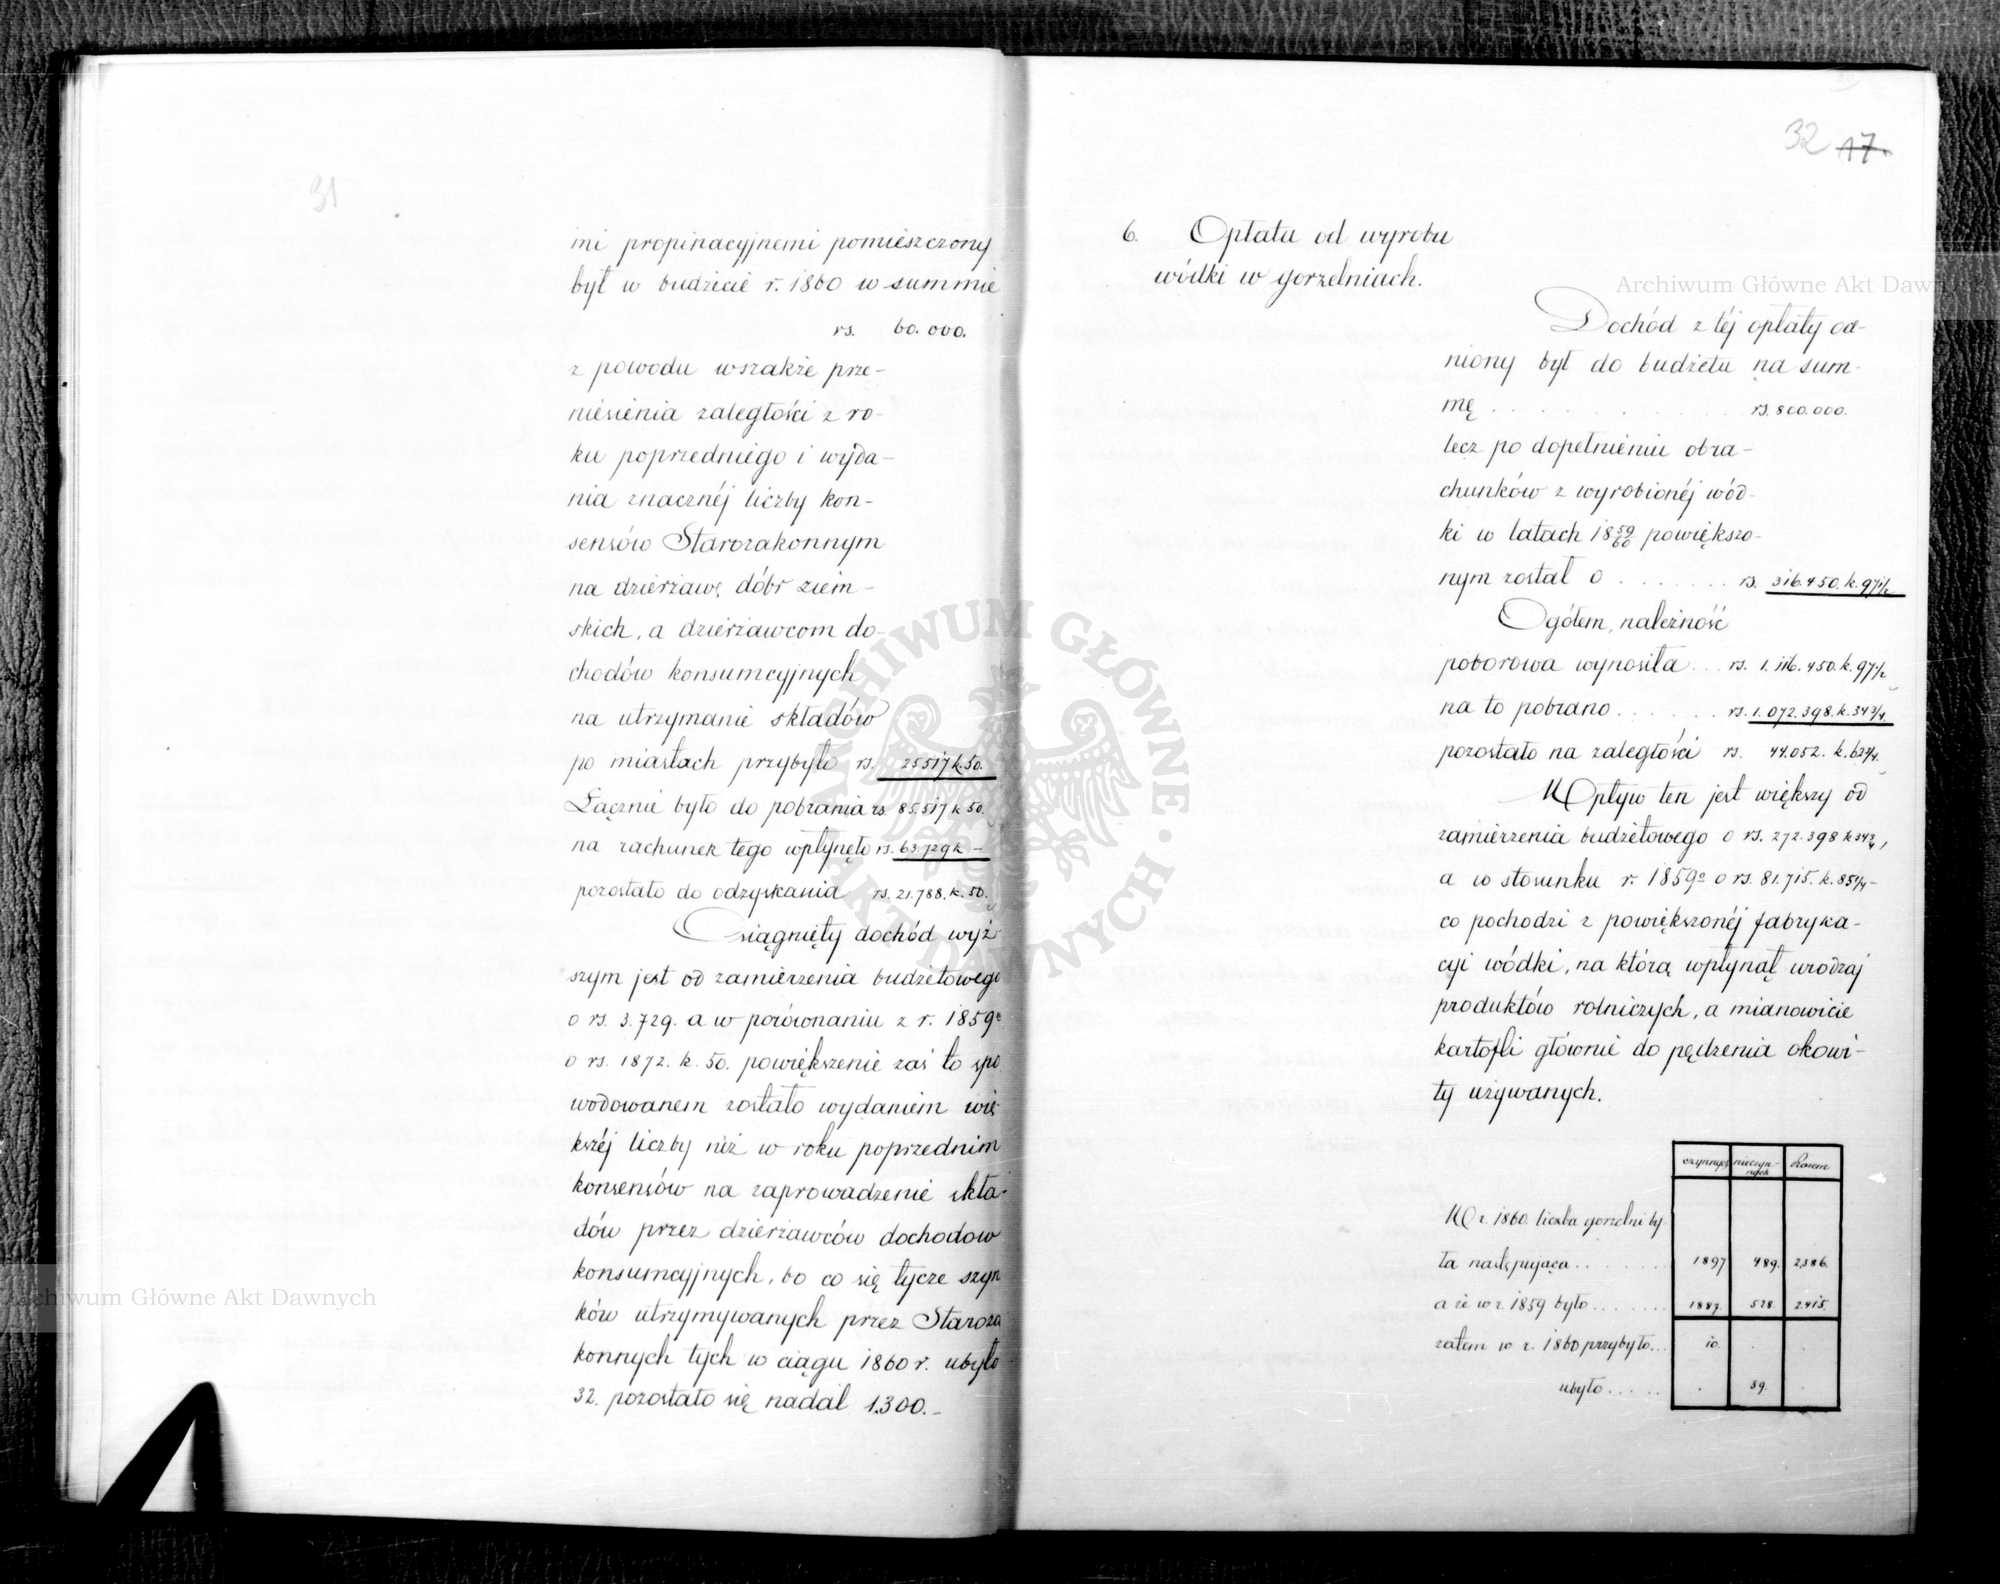 31
mi propinacyjnemi pomieszczony
był w budżecie r. 1860 w summie
rs. 60.000.
z powodu wszakże prze-
niesienia zaległości z ro-
ku poprzedniego i wyda-
nia znacznéj liczby kon-
sensów Starozakonnym
na dzierżawę dóbr ziem-
skich, a dzierżawcom do-
chodów konsumcyjnych
na utrzymanie składów
po miastach przybyło rs. 25517 k. 50.
Łącznie było do pobrania rs. 85.517 k 50.
na rachunek tego wpłynęło rs. 63.729 k -
pozostało do odzyskania rs. 21.788. k. 50.
Osiągnięty dochód wyż
szym jest od zamierzenia budżetowego
o rs. 3.729. a w porównaniu z r. 1859º
o rs. 1872. k. 50. powiększenie zaś to spo
wodowanem zostało wydaniem wię
kszéj liczby niż w roku poprzednim
konsensów na zaprowadzenie skła-
dów przez dzierżawców dochodow
konsumcyjnych, bo co się tycze szyn
ków utrzymywanych przez Staroza
konnych tych w ciągu 1860 r. ubyło
32. pozostało się nadal 1.300.-
32 17.
6. Opłata od wyrobu
wódki w gorzelniach.
Dochód z téj opłaty oce-
niony był do budżetu na sum-
mę . . . . . . . . . rs. 800.000.
lecz po dopełnieniu obra-
chunków z wyrobionéj wód-
ki w latach 1859/60 powiększo-
nym został o . . . . . . rs. 316.450. k. 97 1/2
Ogółem, należność
poborowa wynosiła . . . rs. 1.116.450. k. 97 1/2
na to pobrano . . . . . . rs. 1.072.398. k. 34 3/4.
pozostało na zaległości rs. 44.052. k. 62 3/4.
Wpływ ten jest większy od
zamierzenia budżetowego o rs. 272.398 k 34 3/4,
a w stosunku r. 1859º o rs. 81.715. k. 85 1/4-
co pochodzi z powiększonéj fabryka-
cyi wódki, na którą wpłynął urodzaj
produktów rolniczych, a mianowicie
kartofli głównie do pędzenia okowi-
ty używanych.
czynnych nieczyn-nych Razem
W r. 1860. liczba gorzelni by-
ła następująca . . . . . . . 1897 489. 2386.
a że w r. 1859 było . . . . . . . 1887. 528. 2415.
zatem w r. 1860 przybyło . . . 10. . .
ubyło . . . . . . 39. .
Archiwum Główne Akt Dawnych
ARCHIWUM GŁÓWNE AKT DAWNYCH
Archiwum Główne Akt Dawnych